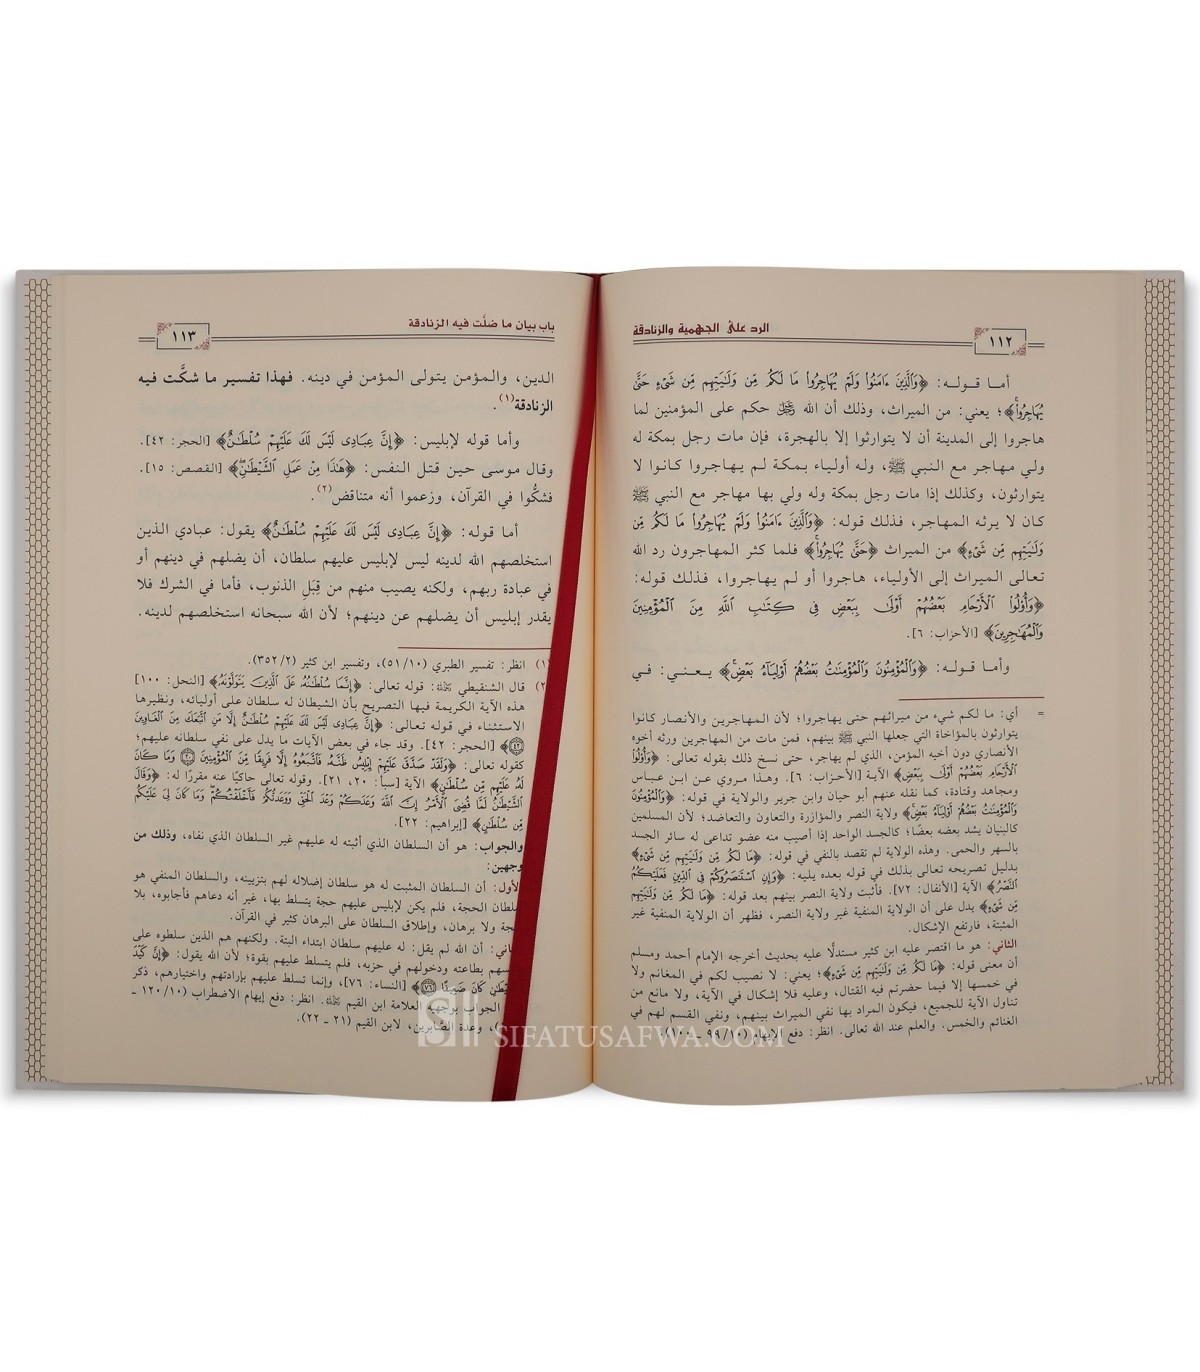 الرد على الجهمية والزنادقة
١١٢
أما قوله: ﴿وَالَّذِينَ ءَامَنُوا وَلَمْ يُهَاجِرُوا مَا لَكُم مِّن وَلَـٰيَتِهِم مِّن شَىْءٍ حَتَّىٰ
يُهَاجِرُوا﴾؛ يعني: من الميراث، وذلك أن الله ﷻ حكم على المؤمنين لما
هاجروا إلى المدينة أن لا يتوارثوا إلا بالهجرة، فإن مات رجل بمكة له
ولي مهاجر مع النبي ﷺ، وله أولياء بمكة لم يهاجروا كانوا لا
يتوارثون، وكذلك إذا مات رجل بمكة وله ولي بها مهاجر مع النبي ﷺ
كان لا يرثه المهاجر، فذلك قوله: ﴿وَالَّذِينَ ءَامَنُوا وَلَمْ يُهَاجِرُوا مَا لَكُم مِّن
وَلَـٰيَتِهِم مِّن شَىْءٍ﴾ من الميراث ﴿حَتَّىٰ يُهَاجِرُوا﴾ فلما كثر المهاجرون رد الله
تعالى الميراث إلى الأولياء، هاجروا أو لم يهاجروا، فذلك قوله:
﴿وَأُولُوا الْأَرْحَامِ بَعْضُهُمْ أَوْلَىٰ بِبَعْضٍ فِى كِتَـٰبِ اللَّهِ مِنَ الْمُؤْمِنِينَ
وَالْمُهَـٰجِرِينَ﴾ [الأحزاب: ٦].
وأما قوله: ﴿وَالْمُؤْمِنُونَ وَالْمُؤْمِنَـٰتُ بَعْضُهُمْ أَوْلِيَاءُ بَعْضٍ﴾ يعني: في
= أي: ما لكم شيء من ميراثهم حتى يهاجروا؛ لأن المهاجرين والأنصار كانوا
يتوارثون بالمؤاخاة التي جعلها النبي ﷺ بينهم، فمن مات من المهاجرين ورثه أخوه
الأنصاري دون أخيه المؤمن، الذي لم يهاجر، حتى نسخ ذلك بقوله تعالى: ﴿وَأُولُوا
الْأَرْحَامِ بَعْضُهُمْ أَوْلَىٰ بِبَعْضٍ﴾ الآية [الأحزاب: ٦]. وهذا مروي عن ابن عباس
ومجاهد وقتادة، كما نقله عنهم أبو حيان وابن جرير والولاية في قوله: ﴿وَالْمُؤْمِنُونَ
وَالْمُؤْمِنَـٰتُ بَعْضُهُمْ أَوْلِيَاءُ بَعْضٍ﴾ ولاية النصر والمؤازرة والتعاون والتعاضد؛ لأن المسلمين
كالبنيان يشد بعضه بعضًا؛ كالجسد الواحد إذا أصيب منه عضو تداعى له سائر الجسد
بالسهر والحمى. وهذه الولاية لم تقصد بالنفي في قوله: ﴿مَا لَكُم مِّن وَلَـٰيَتِهِم مِّن شَىْءٍ﴾
بدليل تصريحه تعالى بذلك في قوله بعده يليه: ﴿وَإِنِ اسْتَنصَرُوكُمْ فِى الدِّينِ فَعَلَيْكُمُ
النَّصْرُ﴾ الآية [الأنفال: ٧٢]. فأثبت ولاية النصر بينهم بعد قوله: ﴿مَا لَكُم مِّن وَلَـٰيَتِهِم
مِّن شَىْءٍ﴾ يدل على أن الولاية المنفية غير ولاية النصر، فظهر أن الولاية المنفية غير
المثبتة، فارتفع الإشكال.
الثاني: هو ما اقتصر عليه ابن كثير مستدلًا عليه بحديث أخرجه الإمام أحمد ومسلم
أن معنى قوله: ﴿مَا لَكُم مِّن وَلَـٰيَتِهِم مِّن شَىْءٍ﴾؛ يعني: لا نصيب لكم في المغانم ولا
في خمسها إلا فيما حضرتم فيه القتال، وعليه فلا إشكال في الآية، ولا مانع من
تناول الآية للجميع، فيكون المراد بها نفي الميراث بينهم، ونفي القسم لهم في
الغنائم والخمس. والعلم عند الله تعالى. انظر: دفع الإيهام (٩٩/١٠ - ١٠٠).
باب بيان ما ضلَّت فيه الزنادقة
١١٣
الدين، والمؤمن يتولى المؤمن في دينه. فهذا تفسير ما شكَّت فيه
الزنادقة(١).
وأما قوله لإبليس: ﴿إِنَّ عِبَادِى لَيْسَ لَكَ عَلَيْهِمْ سُلْطَـٰنٌ﴾ [الحجر: ٤٢].
وقال موسى حين قتل النفس: ﴿هَـٰذَا مِنْ عَمَلِ الشَّيْطَـٰنِ﴾ [القصص: ١٥].
فشكُّوا في القرآن، وزعموا أنه متناقض(٢).
أما قوله: ﴿إِنَّ عِبَادِى لَيْسَ لَكَ عَلَيْهِمْ سُلْطَـٰنٌ﴾ يقول: عبادي الذين
استخلصهم الله لدينه ليس لإبليس عليهم سلطان، أن يضلهم في دينهم أو
في عبادة ربهم، ولكنه يصيب منهم من قِبَلِ الذنوب، فأما في الشرك فلا
يقدر إبليس أن يضلهم عن دينهم؛ لأن الله سبحانه استخلصهم لدينه.
(١) انظر: تفسير الطبري (٥١/١٠)، وتفسير ابن كثير (٣٥٢/٢).
(٢) قال الشنقيطي: قوله تعالى: ﴿إِنَّمَا سُلْطَـٰنُهُ عَلَى الَّذِينَ يَتَوَلَّوْنَهُ﴾ [النحل: ١٠٠]
هذه الآية الكريمة فيها التصريح بأن الشيطان له سلطان على أوليائه، ونظيرها
الاستثناء في قوله تعالى: ﴿إِنَّ عِبَادِى لَيْسَ لَكَ عَلَيْهِمْ سُلْطَـٰنٌ إِلَّا مَنِ اتَّبَعَكَ مِنَ الْغَاوِينَ
٤٢﴾ [الحجر: ٤٢]. وقد جاء في بعض الآيات ما يدل على نفي سلطانه عليهم؛
كقوله تعالى: ﴿وَلَقَدْ صَدَّقَ عَلَيْهِمْ إِبْلِيسُ ظَنَّهُ فَاتَّبَعُوهُ إِلَّا فَرِيقًا مِّنَ الْمُؤْمِنِينَ ٢٠ وَمَا كَانَ
لَهُ عَلَيْهِم مِّن سُلْطَـٰنٍ﴾ الآية [سبأ: ٢٠، ٢١]. وقوله تعالى حاكيًا عنه مقررًا له: ﴿وَقَالَ
الشَّيْطَـٰنُ لَمَّا قُضِىَ الْأَمْرُ إِنَّ اللَّهَ وَعَدَكُمْ وَعْدَ الْحَقِّ وَوَعَدتُّكُمْ فَأَخْلَفْتُكُمْ وَمَا كَانَ لِىَ عَلَيْكُم
مِّن سُلْطَـٰنٍ﴾ [إبراهيم: ٢٢].
والجواب: هو أن السلطان الذي أثبته له عليهم غير السلطان الذي نفاه، وذلك من
وجهين:
الأول: أن السلطان المثبت له هو سلطان إضلاله لهم بتزيينه، والسلطان المنفي هو
سلطان الحجة، فلم يكن لإبليس عليهم حجة يتسلط بها، غير أنه دعاهم فأجابوه، بلا
حجة ولا برهان، وإطلاق السلطان على البرهان كثير في القرآن.
الثاني: أن الله لم يقل: له عليهم سلطان ابتداء البتة. ولكنهم هم الذين سلطوه على
أنفسهم بطاعته ودخولهم في حزبه، فلم يتسلط عليهم بقوة؛ لأن الله يقول: ﴿إِنَّ كَيْدَ
الشَّيْطَـٰنِ كَانَ ضَعِيفًا ٧٦﴾ [النساء: ٧٦]، وإنما تسلط عليهم بإرادتهم واختيارهم، ذكر
الجواب بوجهيه العلامة ابن القيم. انظر: دفع إيهام الاضطراب (١٢٠/١٠ -
وعدة الصابرين، لابن القيم (٢١ - ٢٢).
SIFATUSAFWA.COM